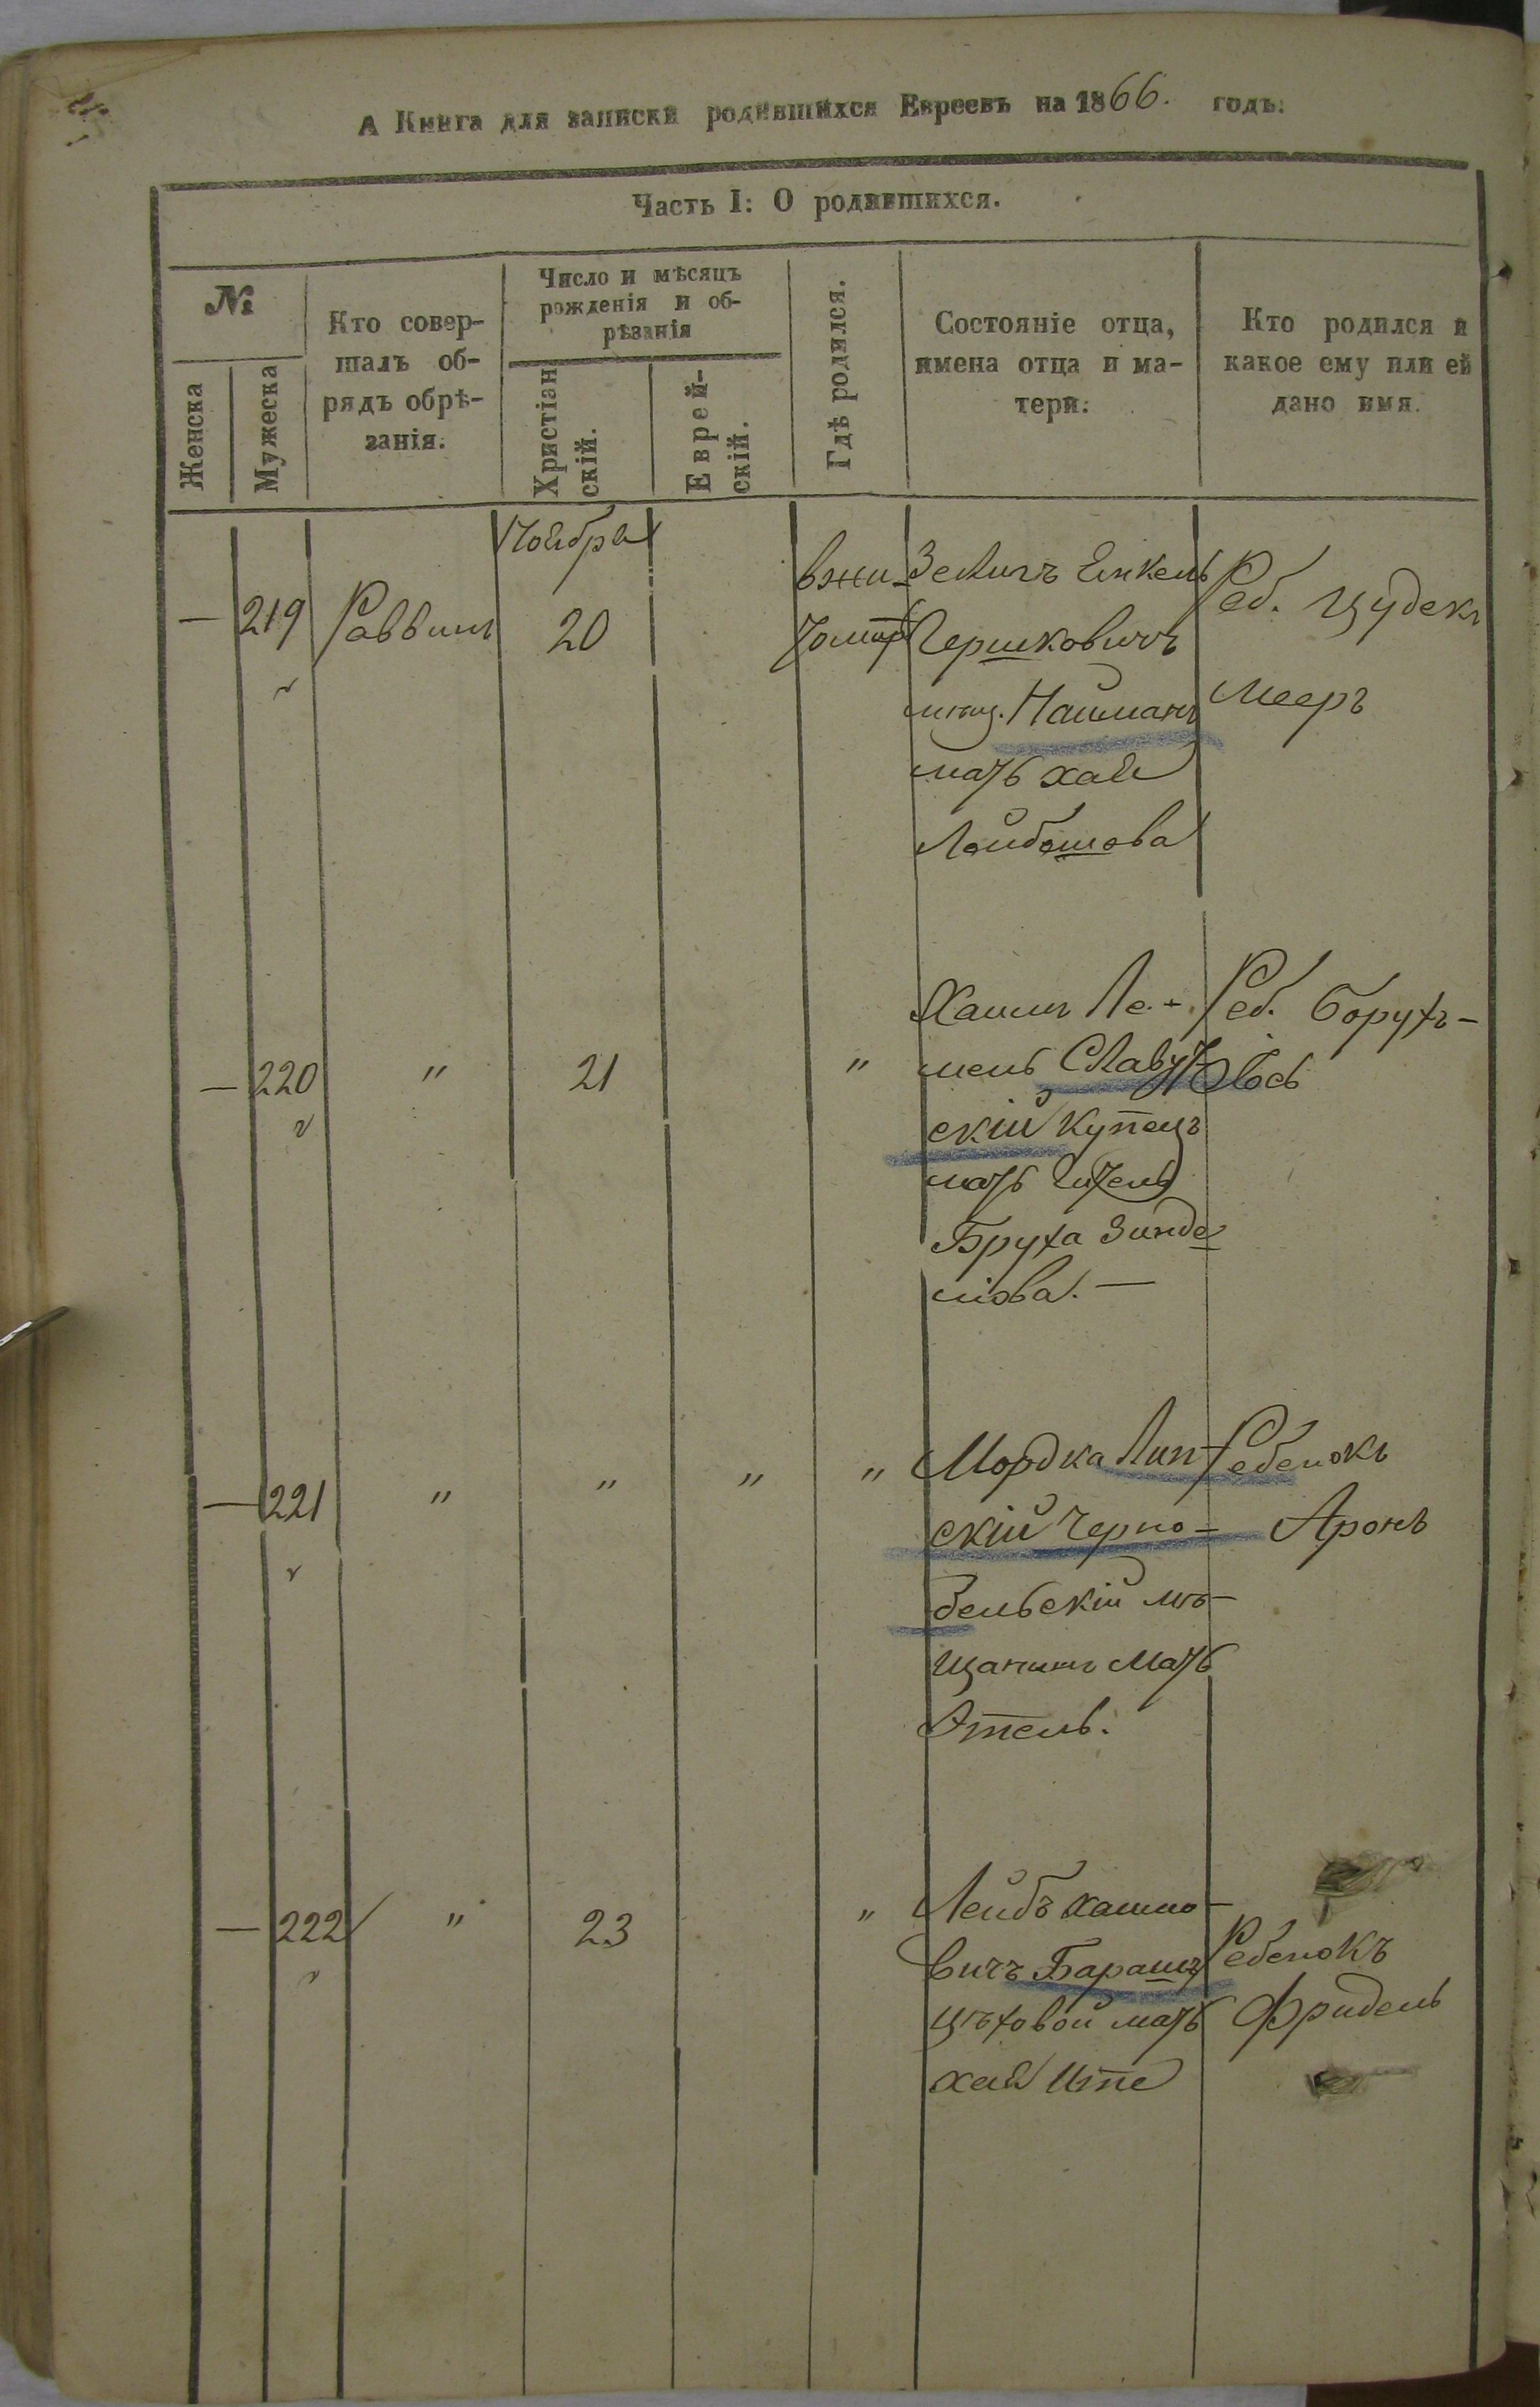 А Книга для записки родившихся Евреевъ на 1866. годъ.
Часть I: О родившихся.
№
Женска
Мужеска
Кто совер-
шалъ об-
рядъ обрѣ-
занія.
Число и мѣсяцъ
рожденія и об-
рѣзанія
Христіан
скій.
Еврей-
скій.
Гдѣ родился.
Состояніе отца,
имена отца и ма-
тери.
Кто родился и
какое ему или ей
дано имя.
Ноября
— 219 Раввинъ 20
вжи-
томир
Зелигъ Енкель
Гершковичъ
мѣщ. Найманъ
мать хая
Лейбошова
Реб. Цудекъ
Мееръ
— 220 " 21 "
Хаимъ Ле-
мень Славут
скій купецъ
мать Гитель
Бруха Зинде
лiова. —
Реб. Борухъ-
— 221 " " " "
Мордка Лип-
скій Черно-
бельскій мѣ-
щанинъ мать
Этель.
Ребенокъ
Аронъ
— 222 " 23 "
Лейбъ хаимо-
вичъ Барашъ
цѣховой мать
хая Ите
Ребенокъ
Фридель